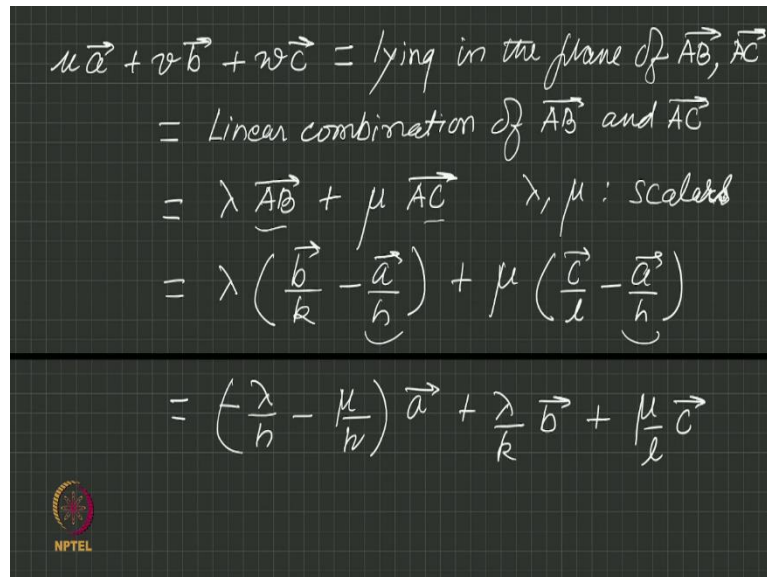 u a⃗ + v b⃗ + w c⃗ = lying in the plane of A⃗B⃗, A⃗C⃗
= Linear combination of A⃗B⃗ and A⃗C⃗
= λ A⃗B⃗ + μ A⃗C⃗ λ, μ : scalars
= λ ( b⃗/k − a⃗/h ) + μ ( c⃗/l − a⃗/h )
= ( −λ/h − μ/h ) a⃗ + λ/k b⃗ + μ/l c⃗
NPTEL